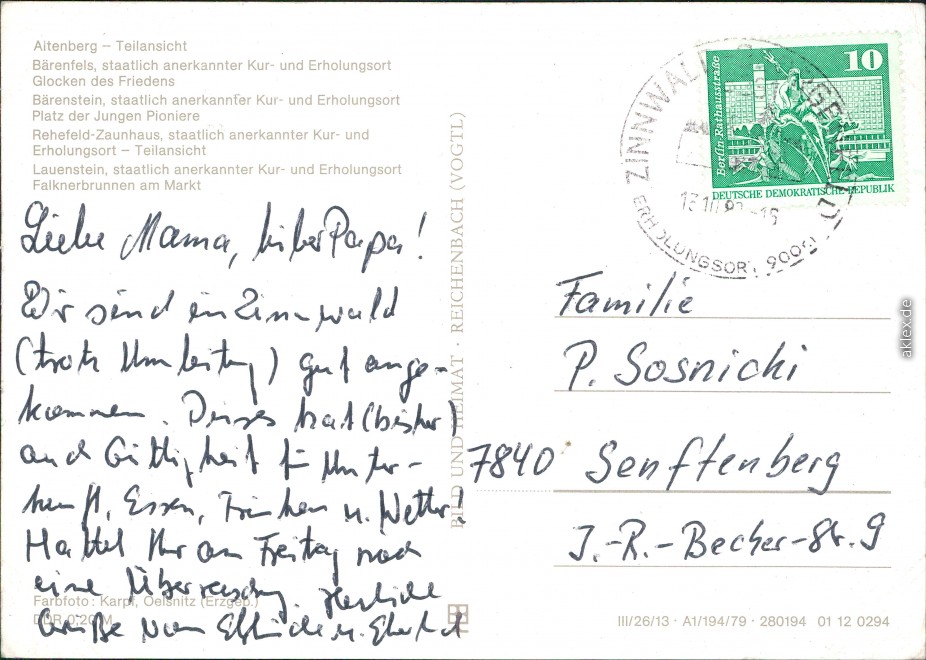 Altenberg – Teilansicht
Bärenfels, staatlich anerkannter Kur- und Erholungsort
Glocken des Friedens
Bärenstein, staatlich anerkannter Kur- und Erholungsort
Platz der Jungen Pioniere
Rehefeld-Zaunhaus, staatlich anerkannter Kur- und
Erholungsort – Teilansicht
Lauenstein, staatlich anerkannter Kur- und Erholungsort
Falknerbrunnen am Markt
Liebe Mama, lieber Papa!
Wir sind in Zinnwald
(trotz Umleitung) gut ange-
kommen. Dieses hat (bisher)
auch Gültigkeit für Unter-
kunft, Essen, Trinken u. Wetter!
Hattet Ihr am Freitag noch
eine Überraschung. Herzliche
Grüße von u.
Farbfoto: Karpf, Oelsnitz (Erzgeb.)
DDR 0,20 M
BILD UND HEIMAT · REICHENBACH (VOGTL)
10
Berlin-Rathausstraße
DEUTSCHE DEMOKRATISCHE REPUBLIK
ZINNWALD
Familie
P. Sosnicki
7840 Senftenberg
J.-R.-Becher-Str. 9
III/26/13 · A1/194/79 · 280194 01 12 0294
aklex.de